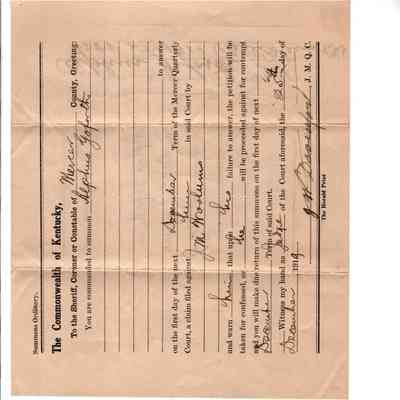 Summons Ordinary.
The Commonwealth of Kentucky,
To the Sheriff, Coroner or Constable of Mercer County, Greeting:
You are commanded to summon Stephus Goforth
to answer
on the first day of the next December Term of the Mercer Quarterly
Court, a claim filed against him in said Court by
J. M. Woolums
and warn him that upon his failure to answer, the petition will be
taken for confessed, or he will be proceeded against for contempt
and you will make due return of this summons on the first day of next
December Term of said Court.
Witness my hand as Judge of the Court aforesaid, the day of
December 191
J. M. Q. C.
The Herald Print